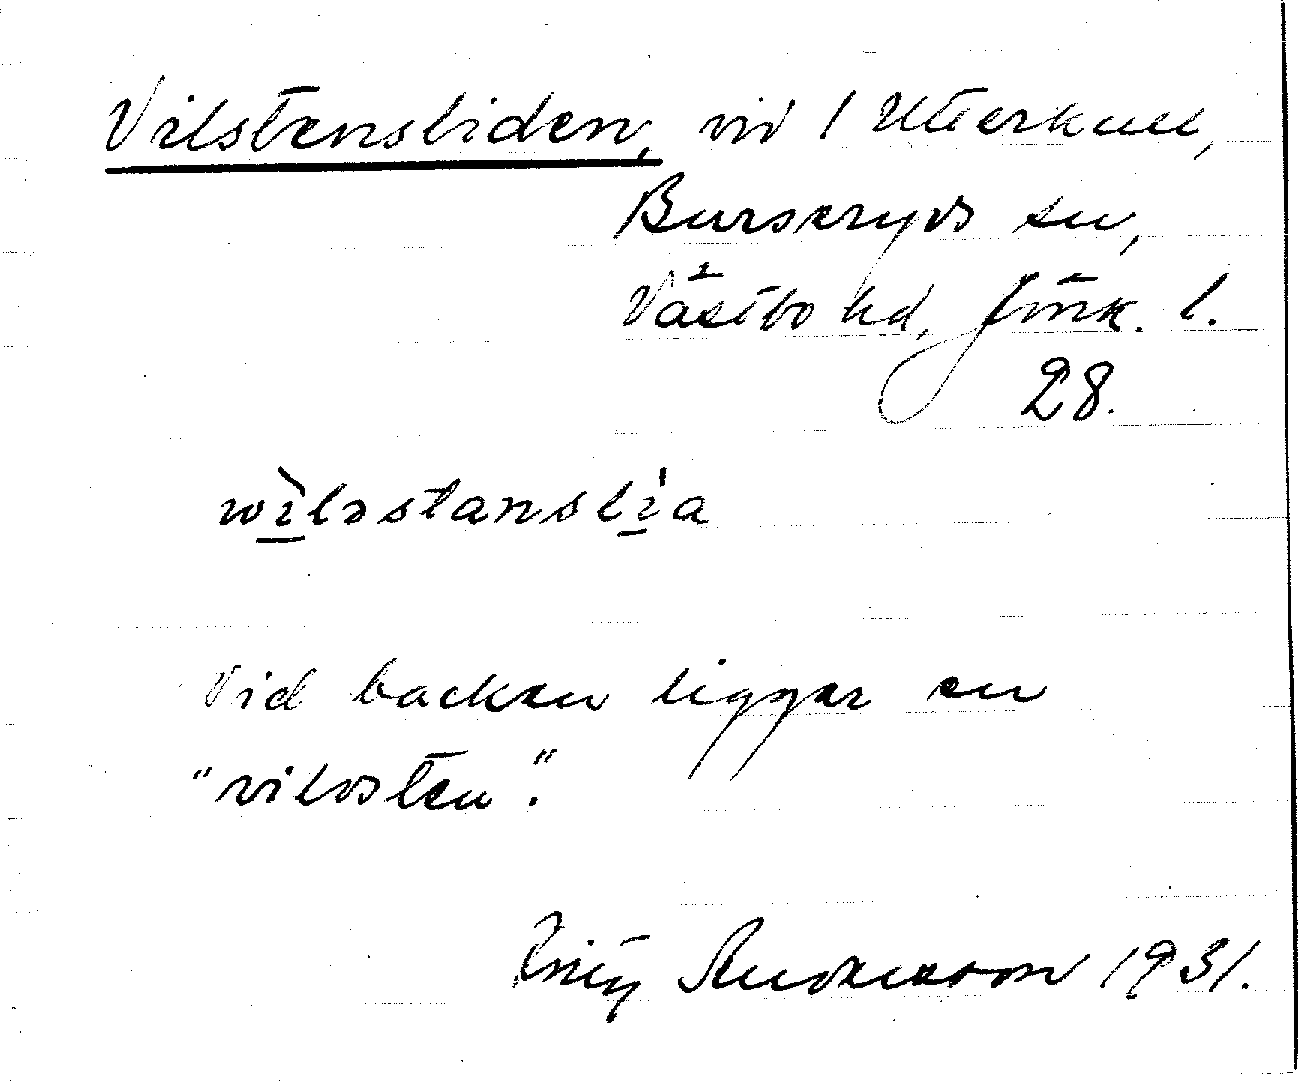 Vilstensliden, vid 1 Utterkull,
Burseryds sn,
Västbo hd, Jönk. l.
28.
wìləstanslía
Vid backen ligger en
"vilosten".
Fritz Andersson 1931.